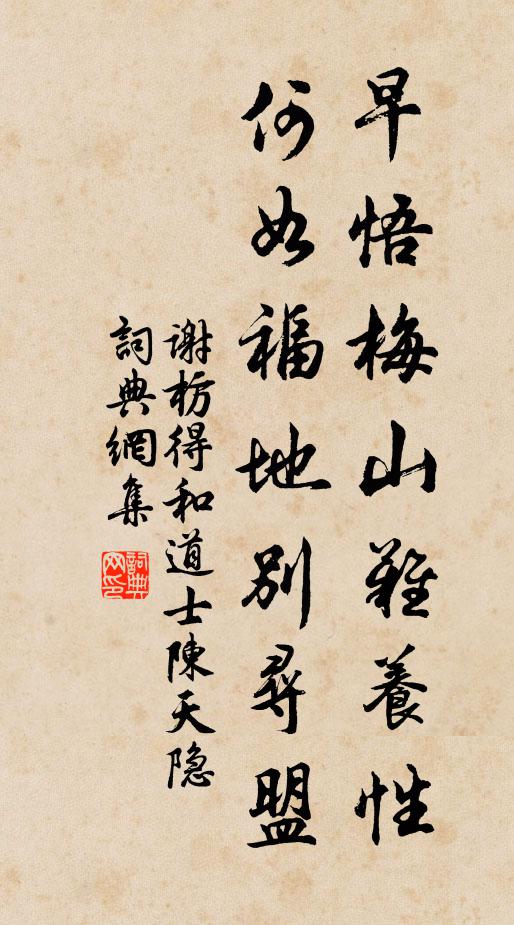 早悟梅山難養性
何如福地别尋盟
谢枋得和道士陳天隐
詞典網集
詞典网印